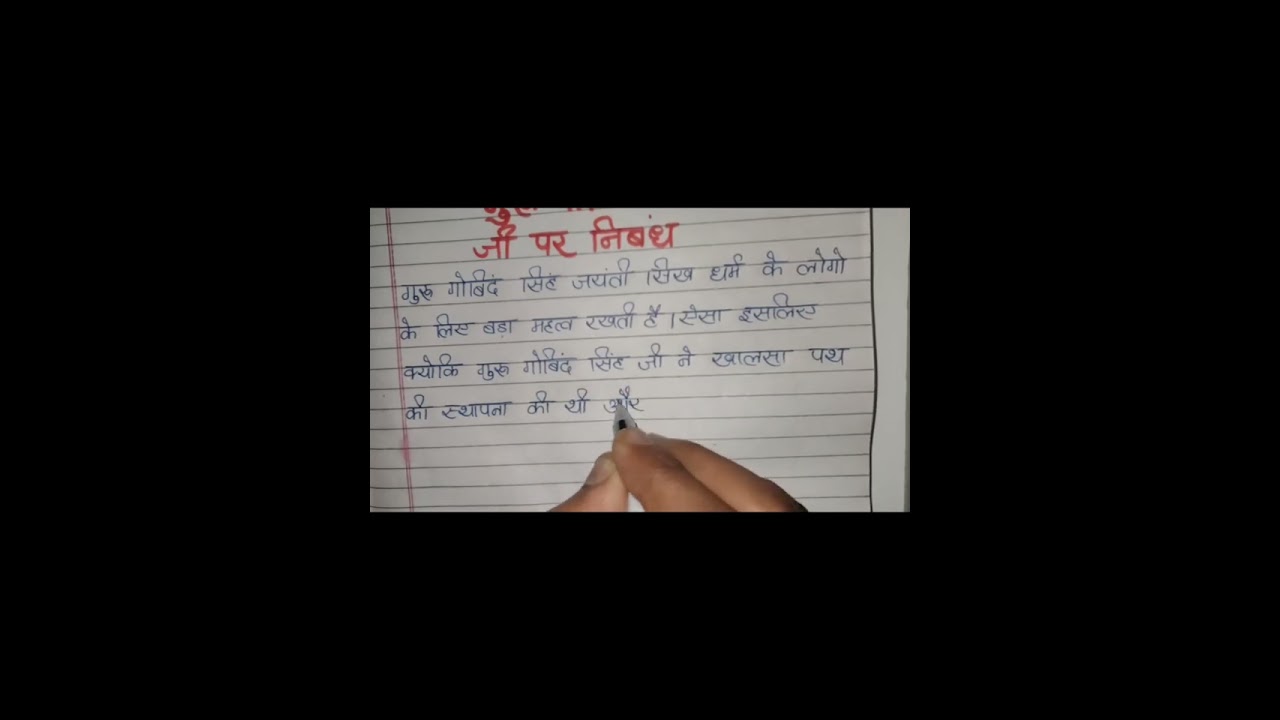 जी पर निबंध
गुरू गोबिंद सिंह जयंती सिख धर्म के लोगो
के लिए बड़ा महत्व रखती है। ऐसा इसलिए
क्योकि गुरू गोबिंद सिंह जी ने खालसा पथ
की स्थापना की थी और